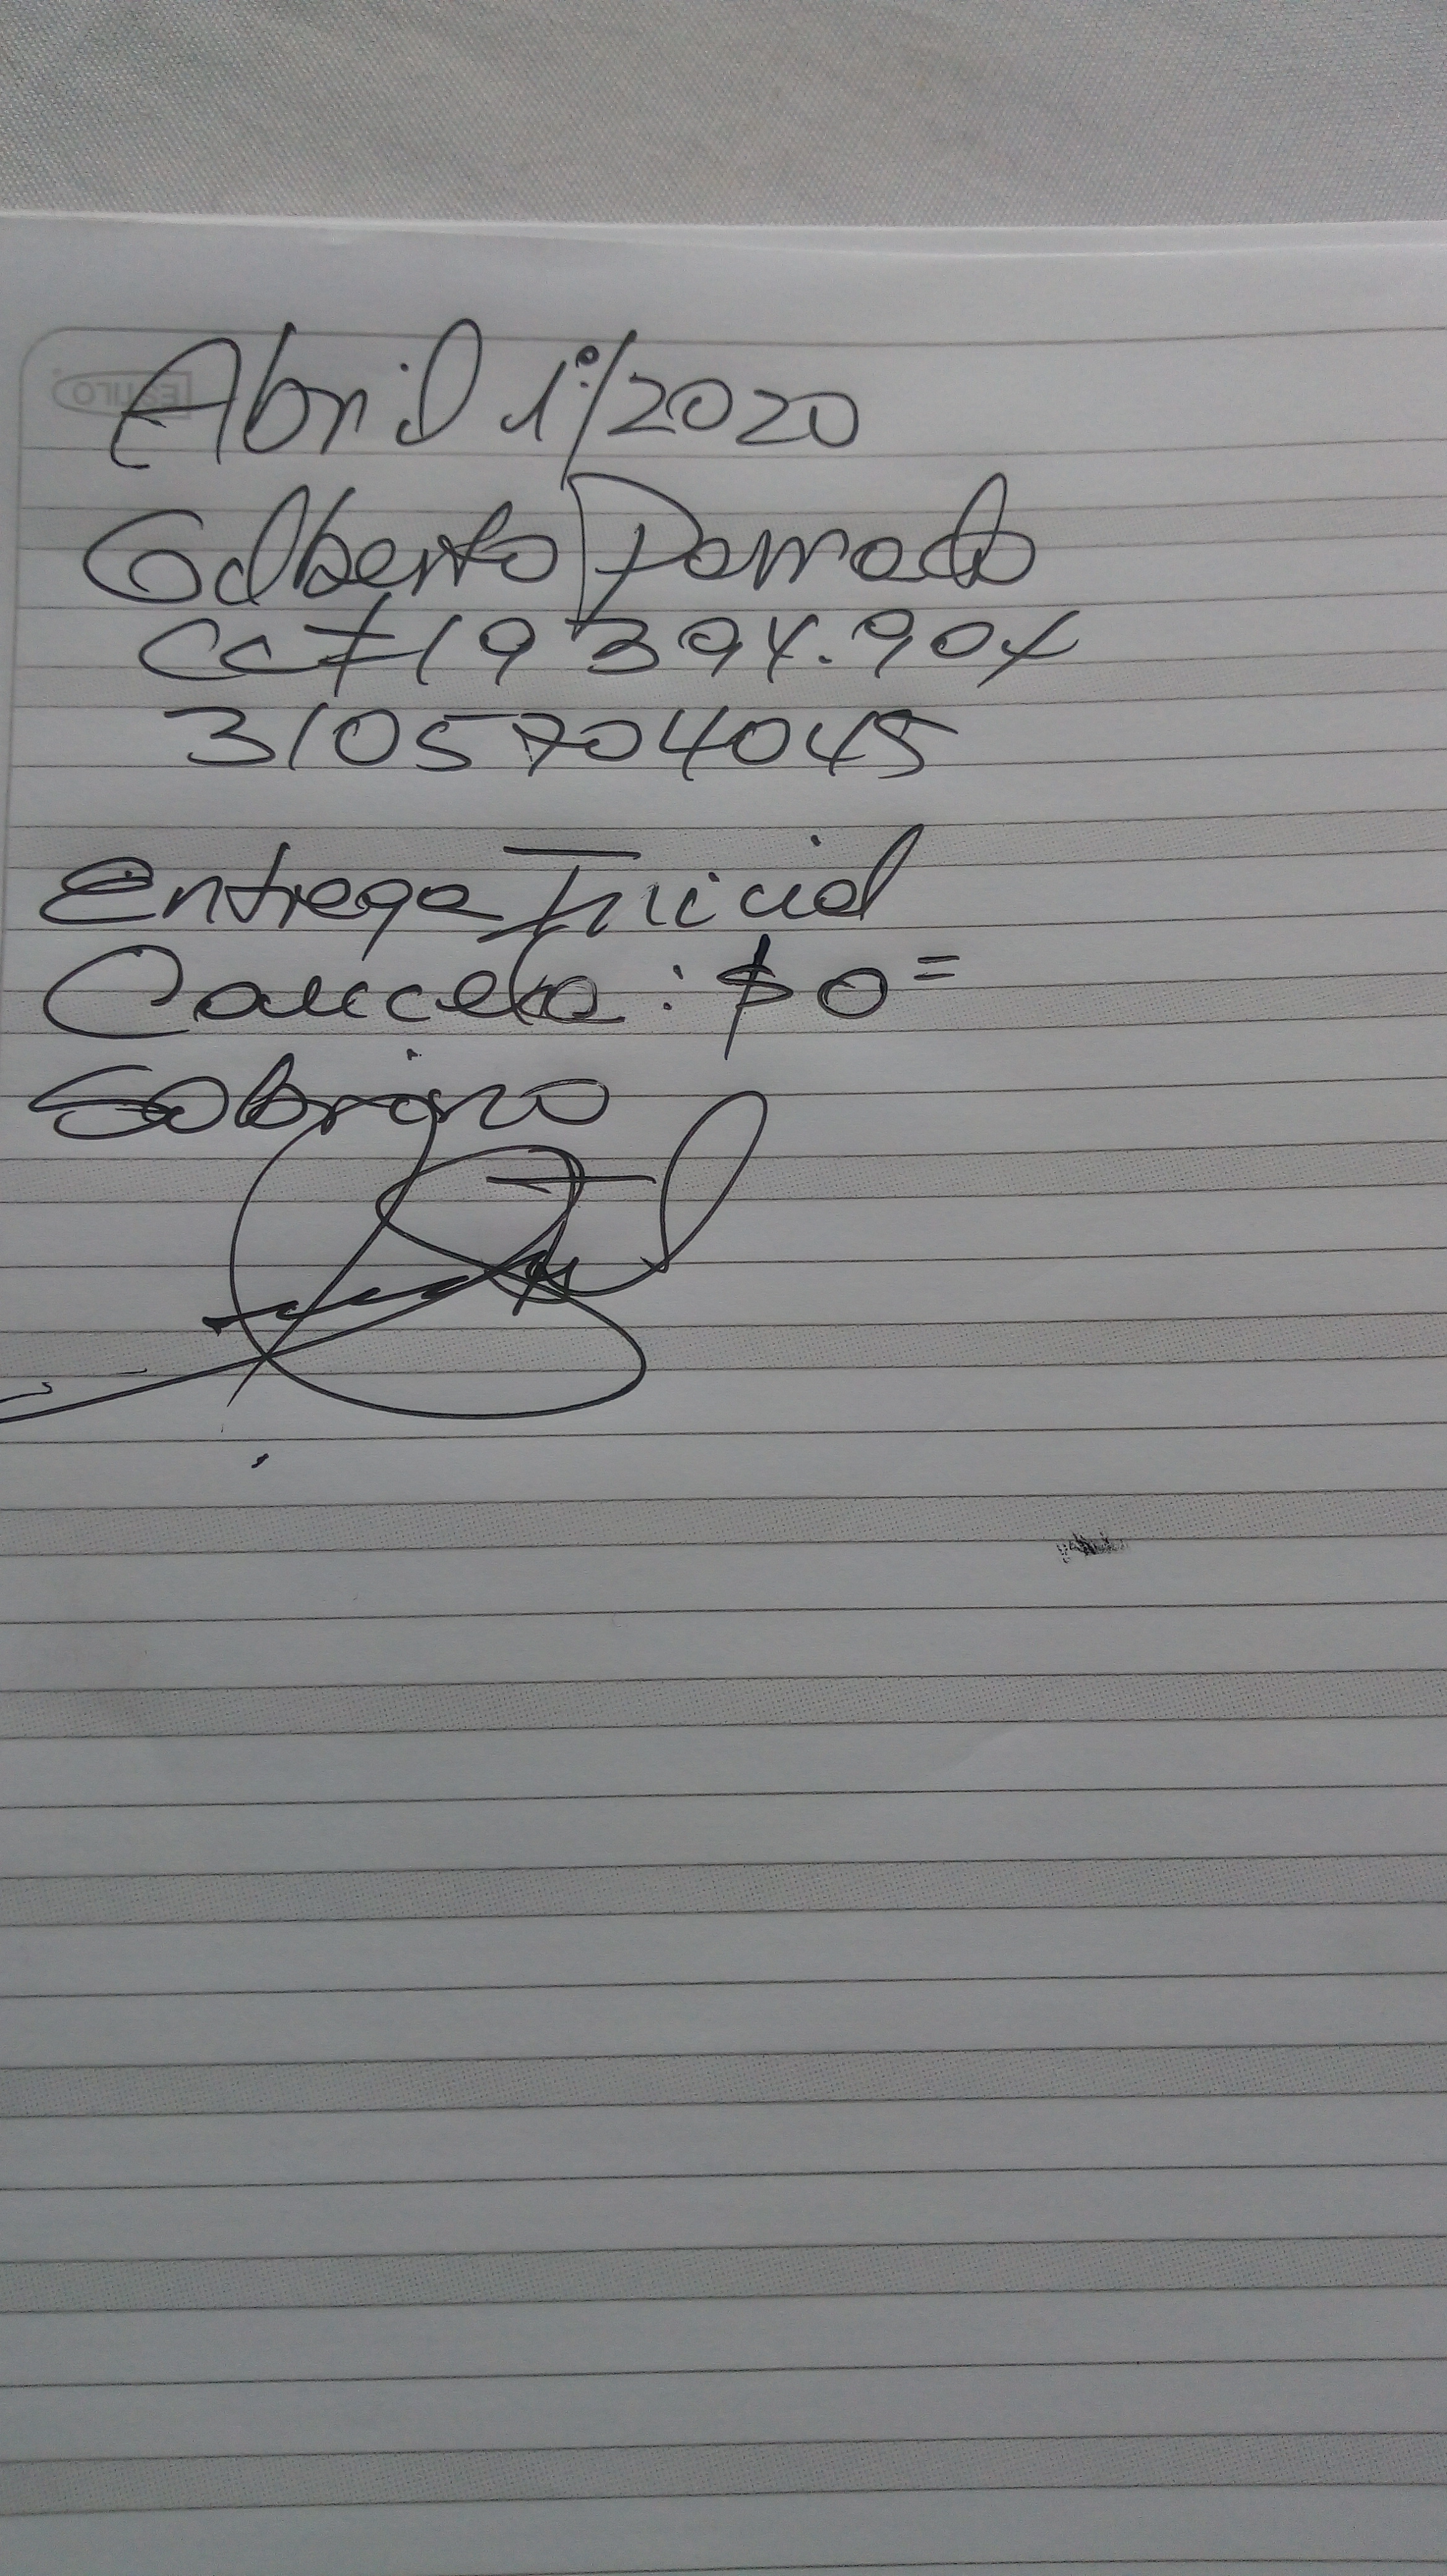 Abril 1º/2020
Gilberto Parrado
CC # 19'394.904
3105704045
Entrega Inicial
Cancela: $0=
Sobrino
ESTILO